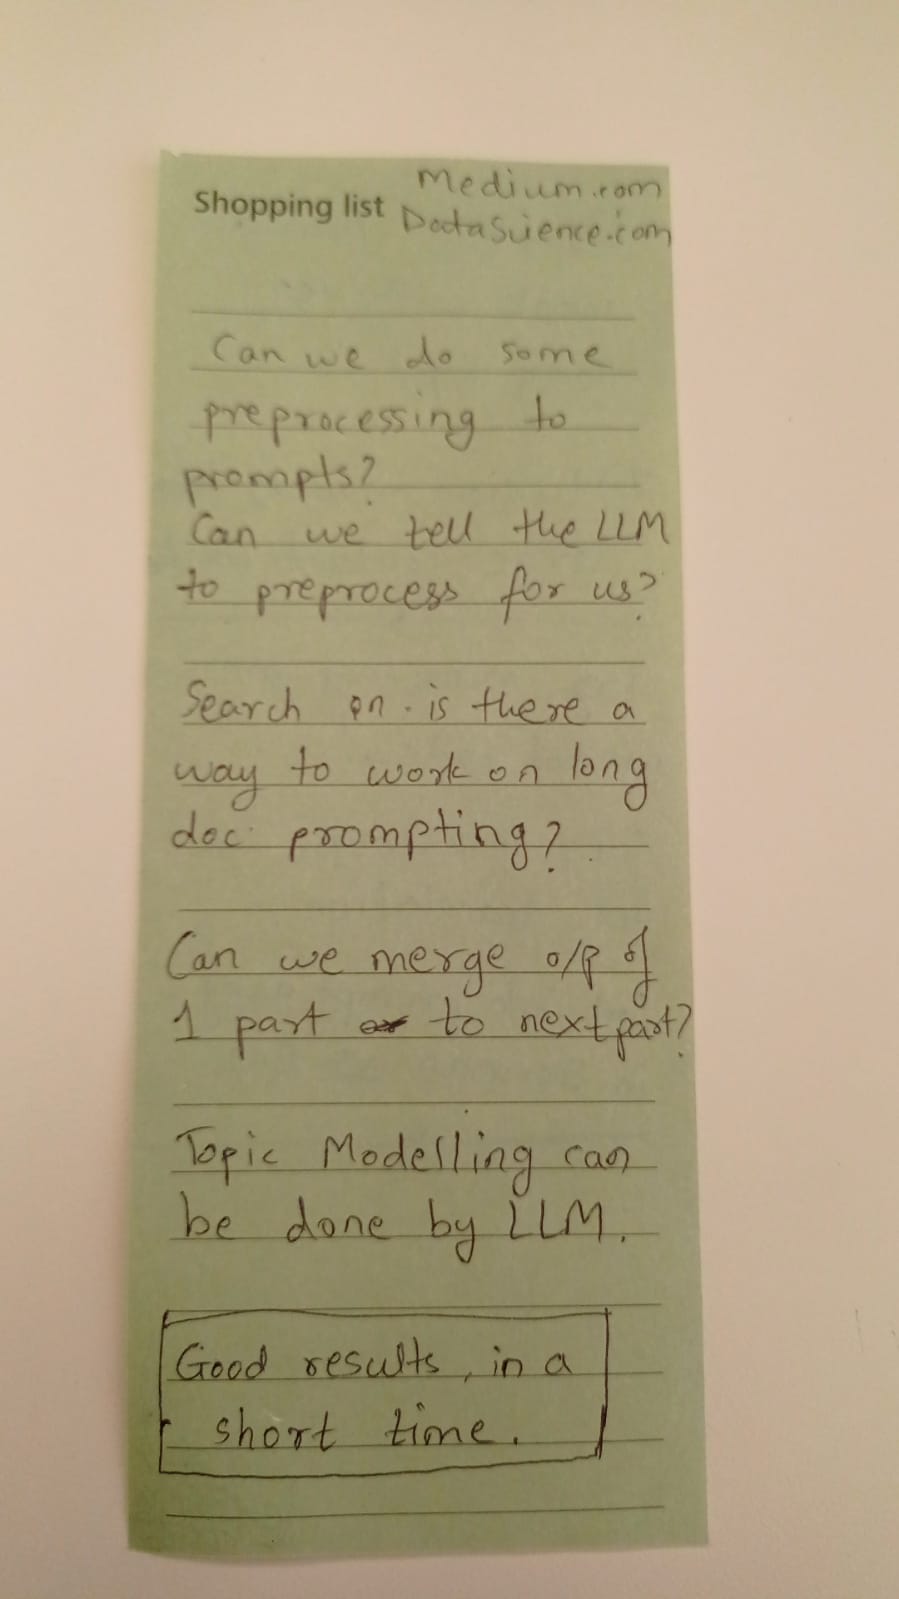 Shopping list
Medium.com
DataScience.com
Can we do some
preprocessing to
prompts?
Can we tell the LLM
to preprocess for us?
Search on. is there a
way to work on long
doc. prompting?
Can we merge o/p of
1 part to next part?
Topic Modelling can
be done by LLM.
Good results, in a
short time.